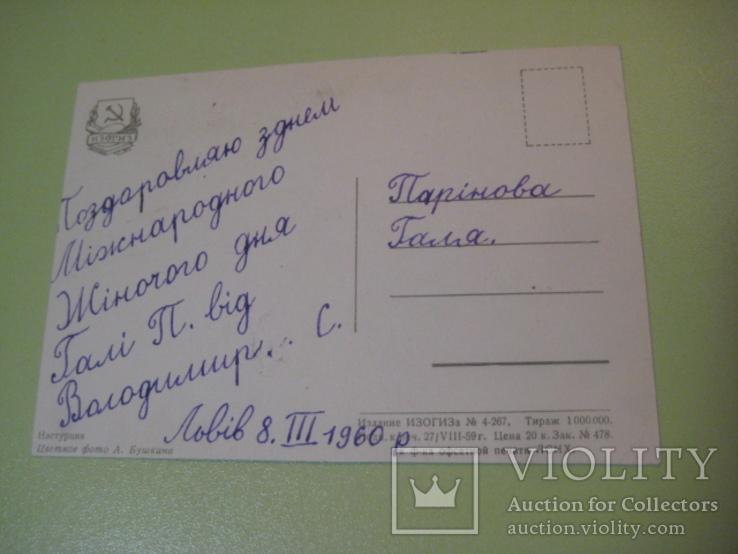 ИЗОГИЗ
Поздаровляю з днем
Міжнародного
Жіночого дня
Галі П. від
Володимир... С.
Львів 8.III 1960 р
Парінова
Галя.
Настурция
Цветное фото А. Бушкина
Издание ИЗОГИЗа № 4-267. Тираж 1 000 000.
27/VIII-59 г. Цена 20 к. Зак. № 478.
ф-ка офсетной печати
VIOLITY
Auction for Collectors
auction.violity.com